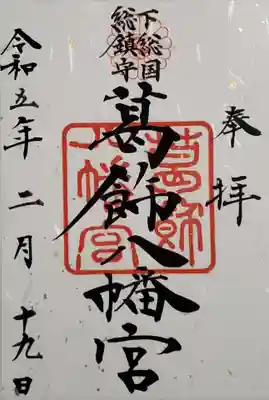 奉拝
下総国
総鎮守
葛飾八幡宮
葛飾
八幡宮
令和五年二月十九日